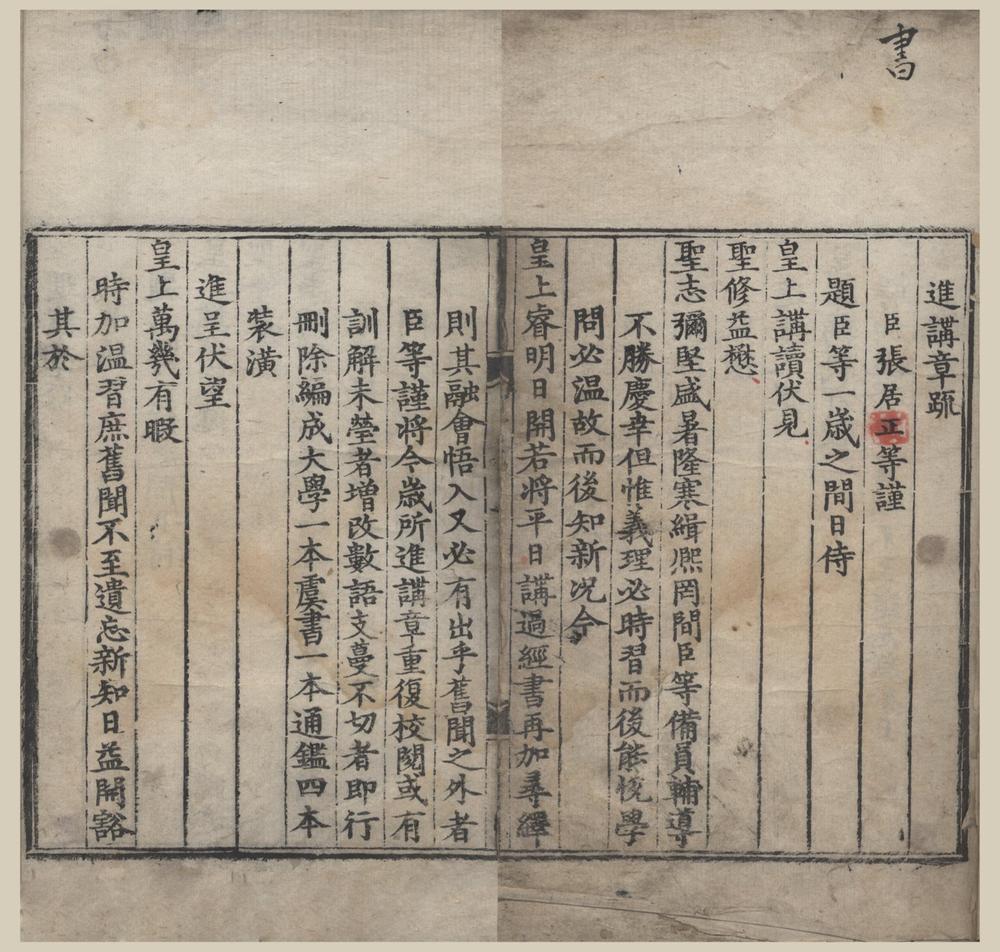 書
進講章疏
臣張居正等謹
題臣等一歲之間日侍
皇上講讀伏見
聖修益懋
聖志彌堅盛暑隆寒緝熈罔間臣等備員輔導
不勝慶幸但惟義理必時習而後能悅學
問必温故而後知新况今
皇上睿明日開若将平日講過經書再加尋繹
則其融會悟入又必有出乎舊聞之外者
臣等謹將今歲所進講章重復校閱或有
訓解未瑩者增改數語支蔓不切者即行
刪除編成大學一本虞書一本通鑑四本
裝潢
進呈伏望
皇上萬幾有暇
時加温習庶舊聞不至遺忘新知日益開豁
其於